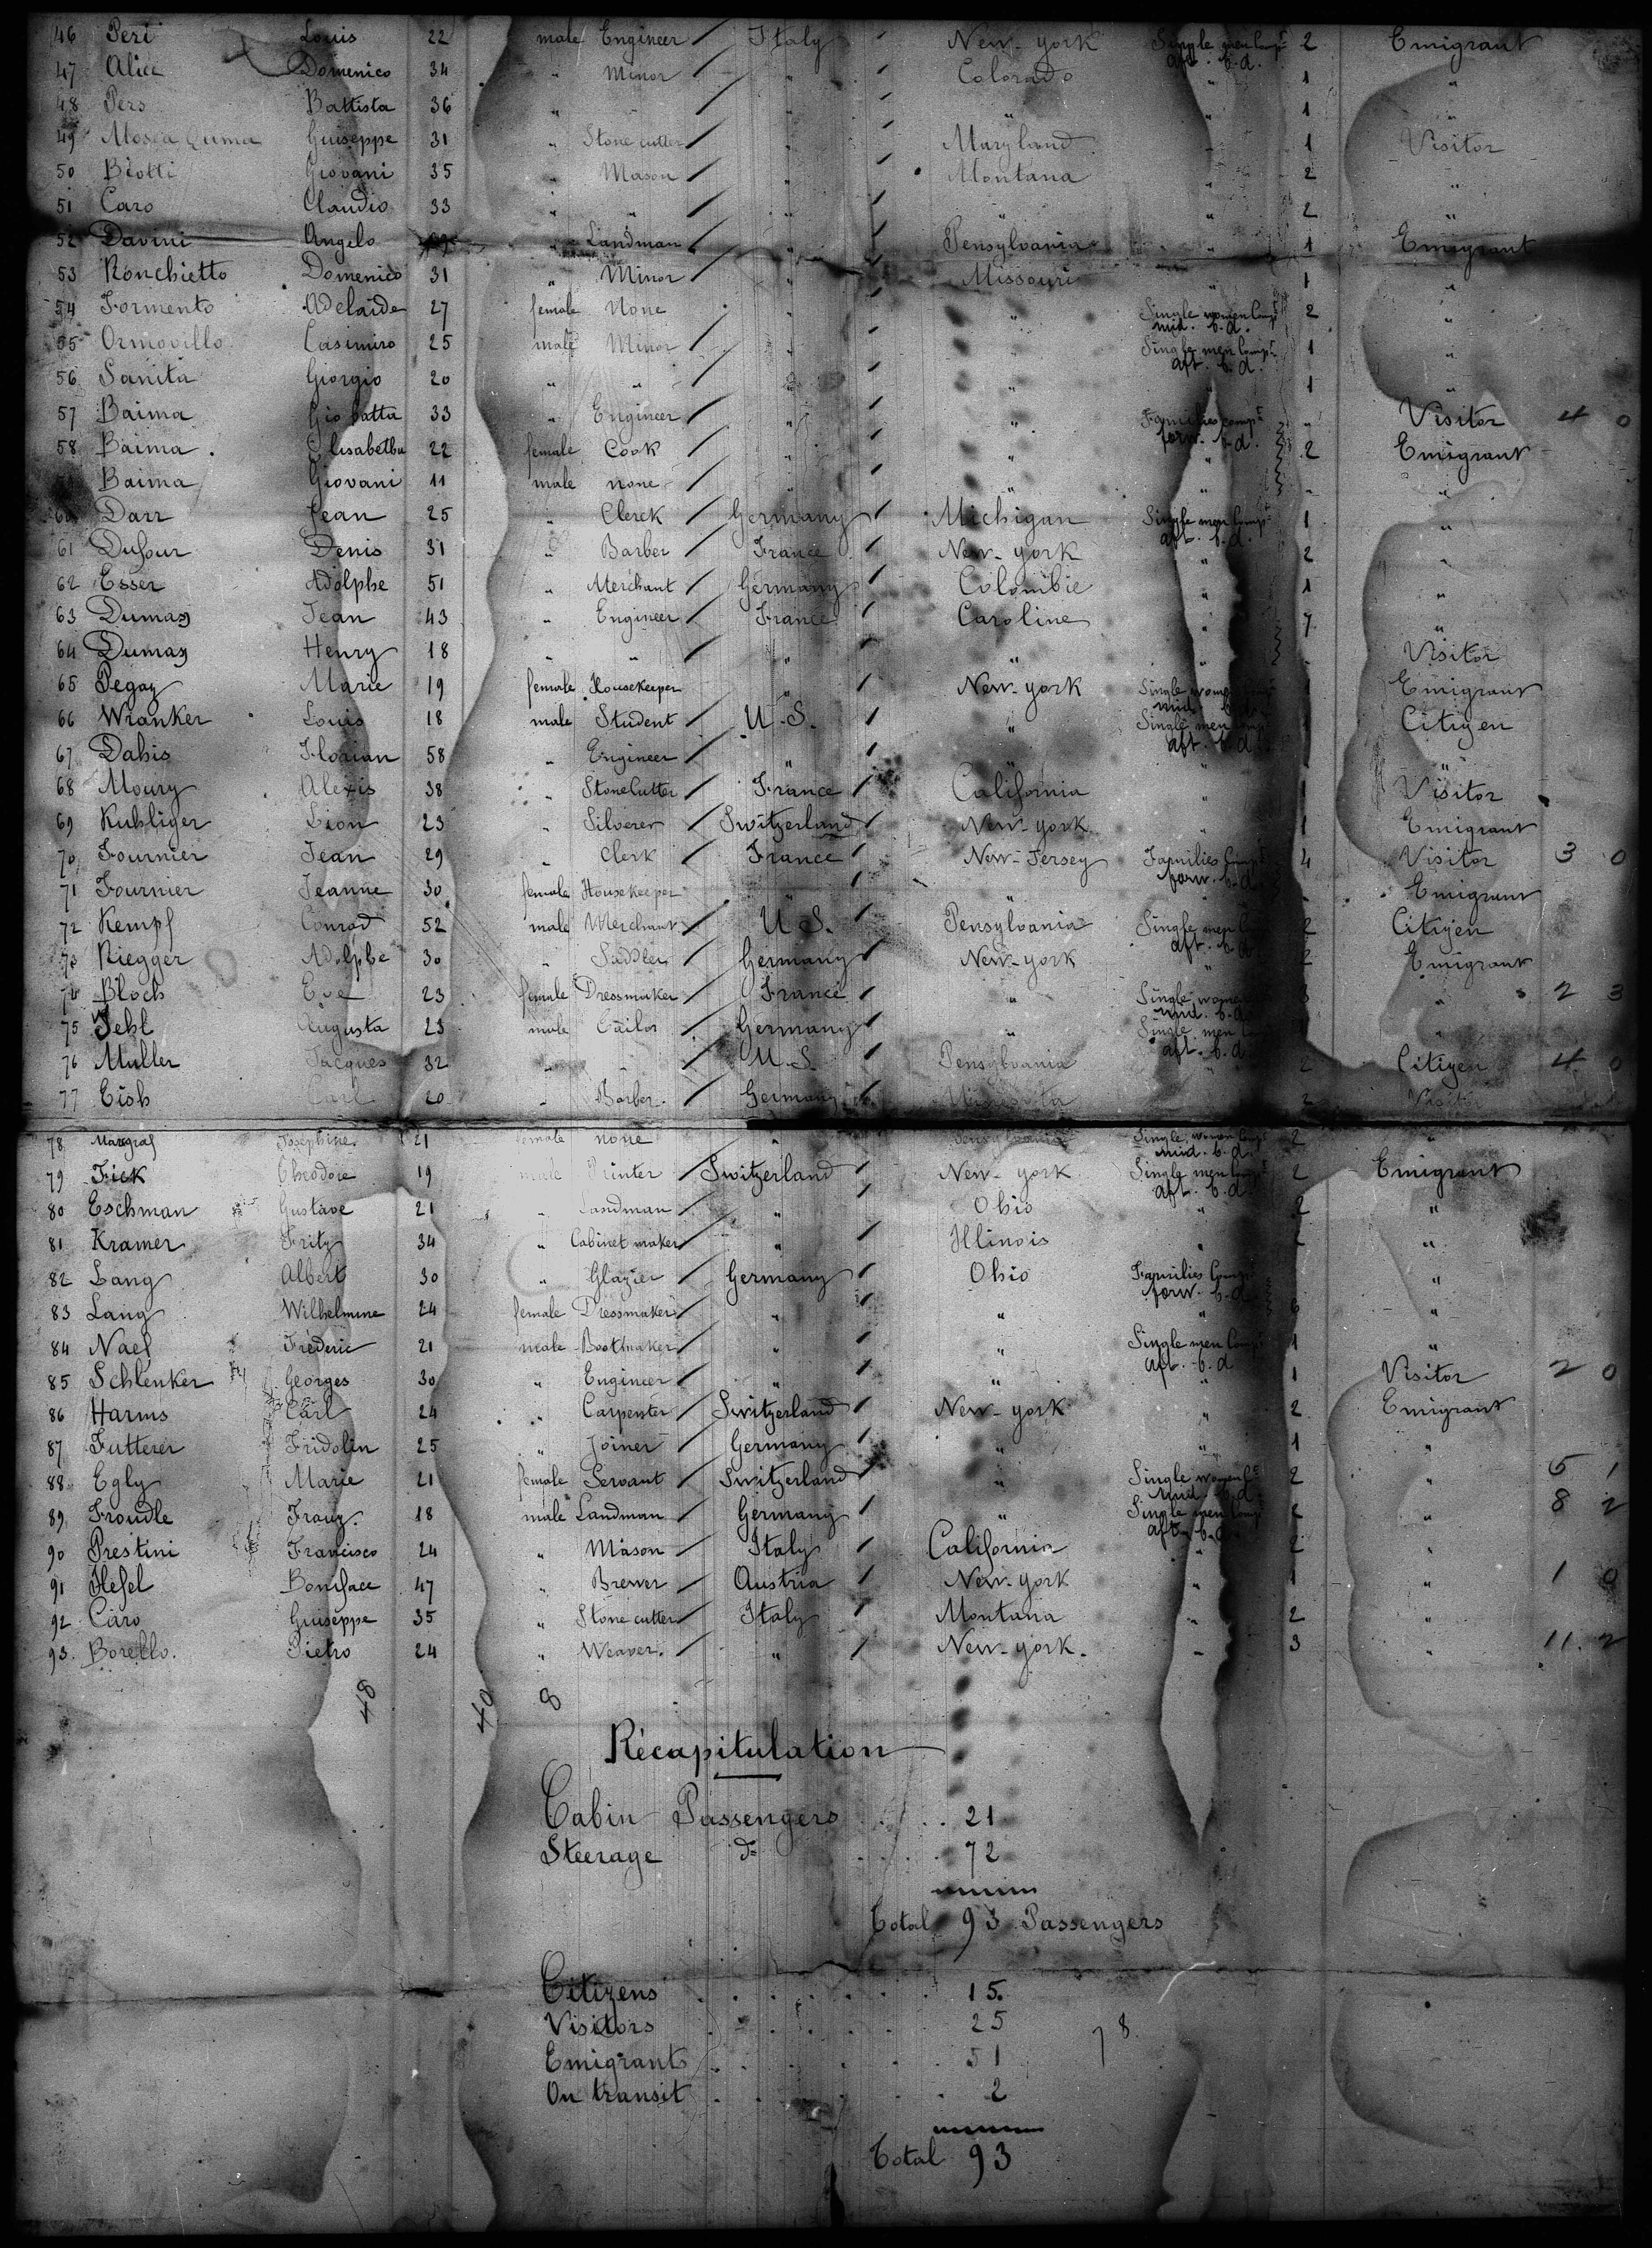 46 Peri Louis 22 male Engineer / Italy / New-york Single men Compt aft. b.d. 2 Emigrant
47 Alice Domenico 34 " Minor / " / Colorado " 1 "
48 Pers Battista 36 " " / " / " " 1 "
49 Mosca Guiseppe 31 " Stone cutter / " / Maryland " 1 Visitor
50 Biolti Giovani 35 " Mason / " / Montana " 2 "
51 Caro Claudio 33 " " / " / " " 2 "
52 Davini Angelo " Landman / " / Pensylvania " 1 Emigrant
53 Ronchietto Domenico 31 " Minor / " / Missouri " 1 "
54 Formento Adelaide 27 female None " / " Single women Compt mid. b.d. 2 "
55 Ormovillo Casimiro 25 male Minor / " / " Single men Compt aft. b.d. 1 "
56 Sanita Giorgio 20 " " / " / " " 1 "
57 Baima Gio batta 33 " Engineer / " / " Families compt forw. b.d. " Visitor 4 0
58 Baima. Elisabetha 22 female Cook / " / " " 2 Emigrant
Baima Giovani 11 male none / " / " " "
60 Darr Jean 25 " Clerck / Germany / Michigan Single men Compt aft. b.d. 1 "
61 Dufour Denis 31 " Barber / France / New-york " 2 "
62 Esser Adolphe 51 " Merchant / Germany / Colombie " 1 "
63 Dumas Jean 43 " Engineer / France / Caroline " 7 "
64 Dumas Henry 18 " " / " / " " Visitor
65 Pegay Marie 19 female Housekeeper " / New-york Single women mid. b.d. 1 Emigrant
66 Wranker Louis 18 male Student / U.S. / " Single men Compt aft. b.d. 1 Citizen
67 Dabis Florian 58 " Engineer / " / " " 1 "
68 Moury Alexis 38 " Stone Cutter / France / California " 1 Visitor
69 Kubliger Lion 23 " Silverer / Switzerland / New-york " 1 Emigrant
70 Fournier Jean 29 " Clerk / France / New-Jersey Families Compt forw. b.d. 4 Visitor 3 0
71 Fournier Jeanne 30 female Housekeeper " / " " Emigrant
72 Kempf Conrad 52 male Merchant / U.S. / Pensylvania Single men aft. b.d. 2 Citizen
73 Riegger Adolphe 30 " Saddler / Germany / New-york " 2 Emigrant
74 Bloch Eve 23 female Dressmaker / France / " Single women mid. b.d. 3 " 2 3
75 Jehl Augusta 23 male Tailor / Germany / " Single men aft. b.d. "
76 Muller Jacques 32 " " / U.S. / Pensylvania " 2 Citizen 4 0
77 Eish Carl 20 " Barber. / Germany / 2 Visitor
78 Maregraf Josephine 21 female none " Pensylvania Single women Compt mid. b.d. 2 "
79 Fick Theodore 19 male Printer / Switzerland / New-york Single men Compt aft. b.d. 2 Emigrant
80 Eschman Gustave 21 " Landman / " / Ohio " 2 "
81 Kramer Fritz 34 " Cabinet maker / " / Illinois " "
82 Lang Albert 30 " Glazier / Germany / Ohio Families Compt forw. b.d. "
83 Lang Wilhelmine 24 female Dressmaker / " / " " 6 "
84 Naef Fréderic 21 male Bootmaker / " / " Single men Compt aft. b.d. 1 "
85 Schlenker Georges 30 " Engineer / " / " " 1 Visitor 2 0
86 Harms Carl 24 " Carpenter / Switzerland / New-york " 2 Emigrant
87 Futterer Fridolin 25 " Joiner / Germany / " " 1 "
88 Egly Marie 21 female Servant / Switzerland / " Single women Ct mid. b.d. 2 " 5 1
89 Froudle Franz. 18 male Landman / Germany / " Single men Compt aft. b.d. 2 " 8 2
90 Prestini Francisco 24 " Mason / Italy / California " 2 "
91 Hefel Boniface 47 " Brewer / Austria / New-york " 1 " 1 0
92 Caro Guiseppe 35 " Stone cutter / Italy / Montana " 2 "
93. Borello. Pietro 24 " Weaver. / " / New-york. " 3 " 11. 2
48 40 8
Récapitulation
Cabin Passengers . . . 21
Steerage do . . . . 72
Total 93 Passengers
Citizens . . . . . . . 15.
Visitors . . . . . . 25
Emigrants . . . . . . 51 78
On transit . . . . . . 2
Total 93